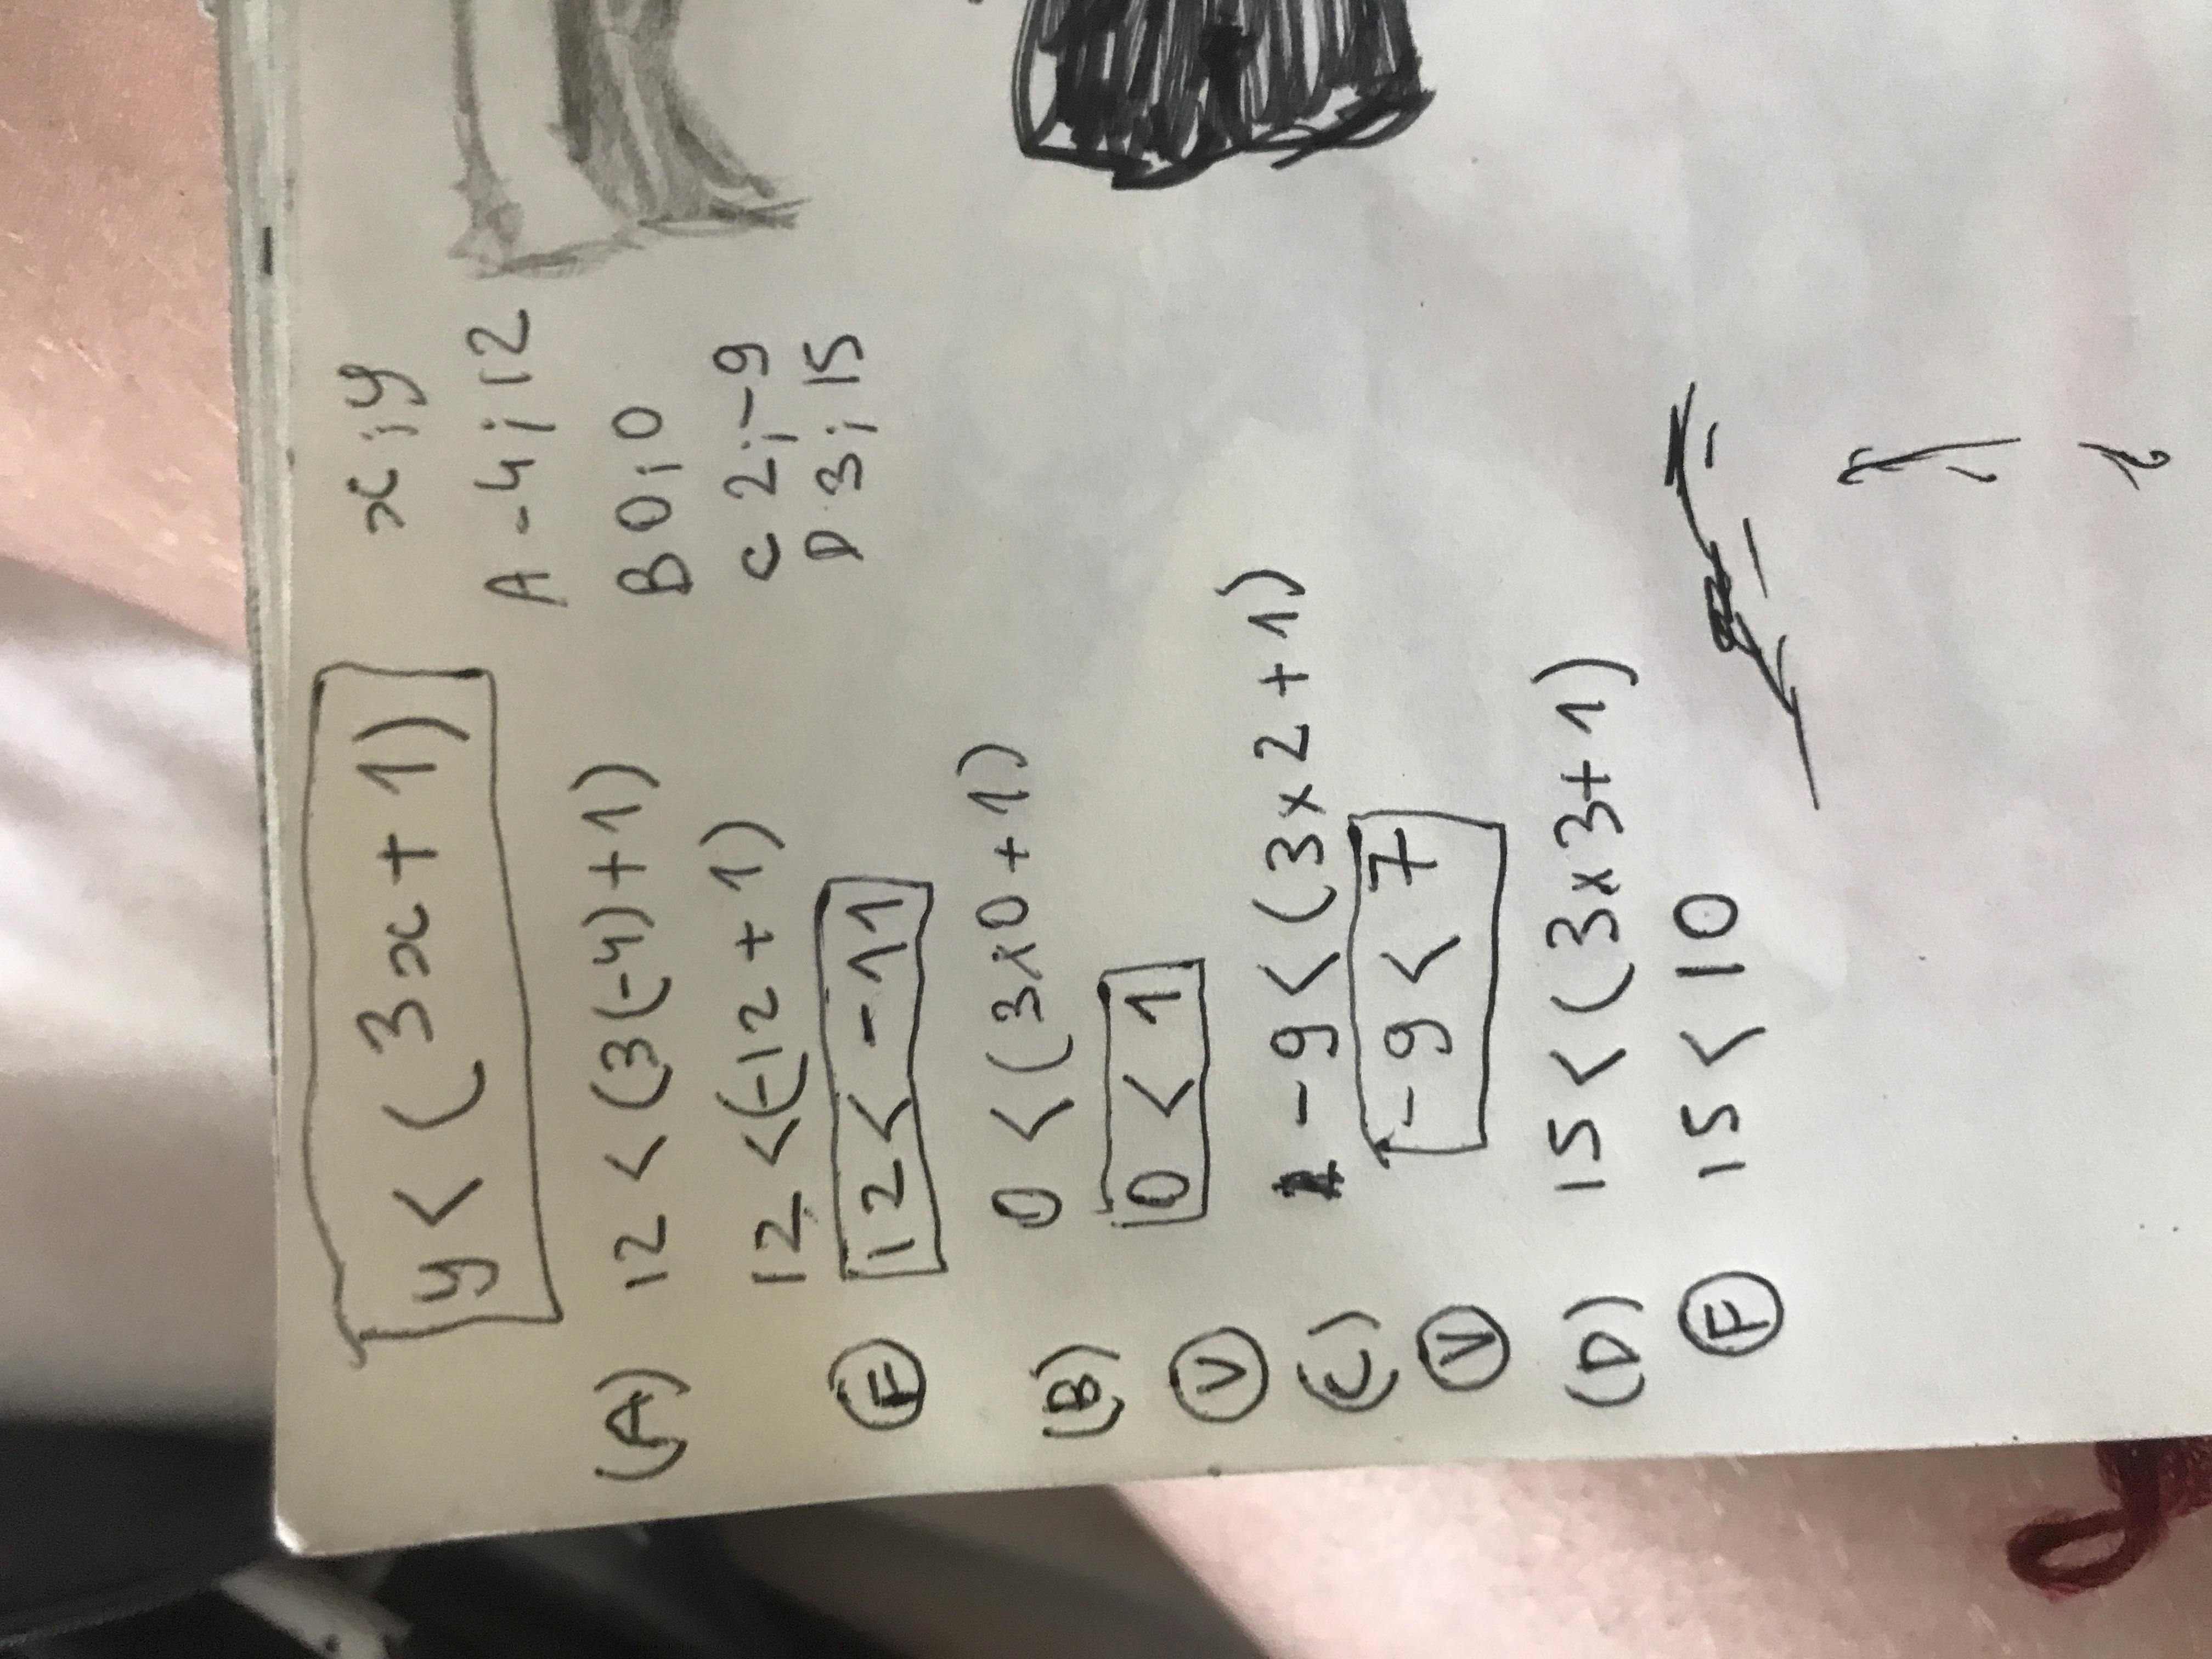 y < (3x + 1)
x ; y
A -4 ; 12
B 0 ; 0
C 2 ; -9
D 3 ; 15
(A) 12 < (3(-4)+1)
12 < (-12 + 1)
F 12 < -11
(B) 0 < (3x0+1)
V 0 < 1
(C) -9 < (3x2+1)
V -9 < 7
(D) 15 < (3x3+1)
F 15 < 10